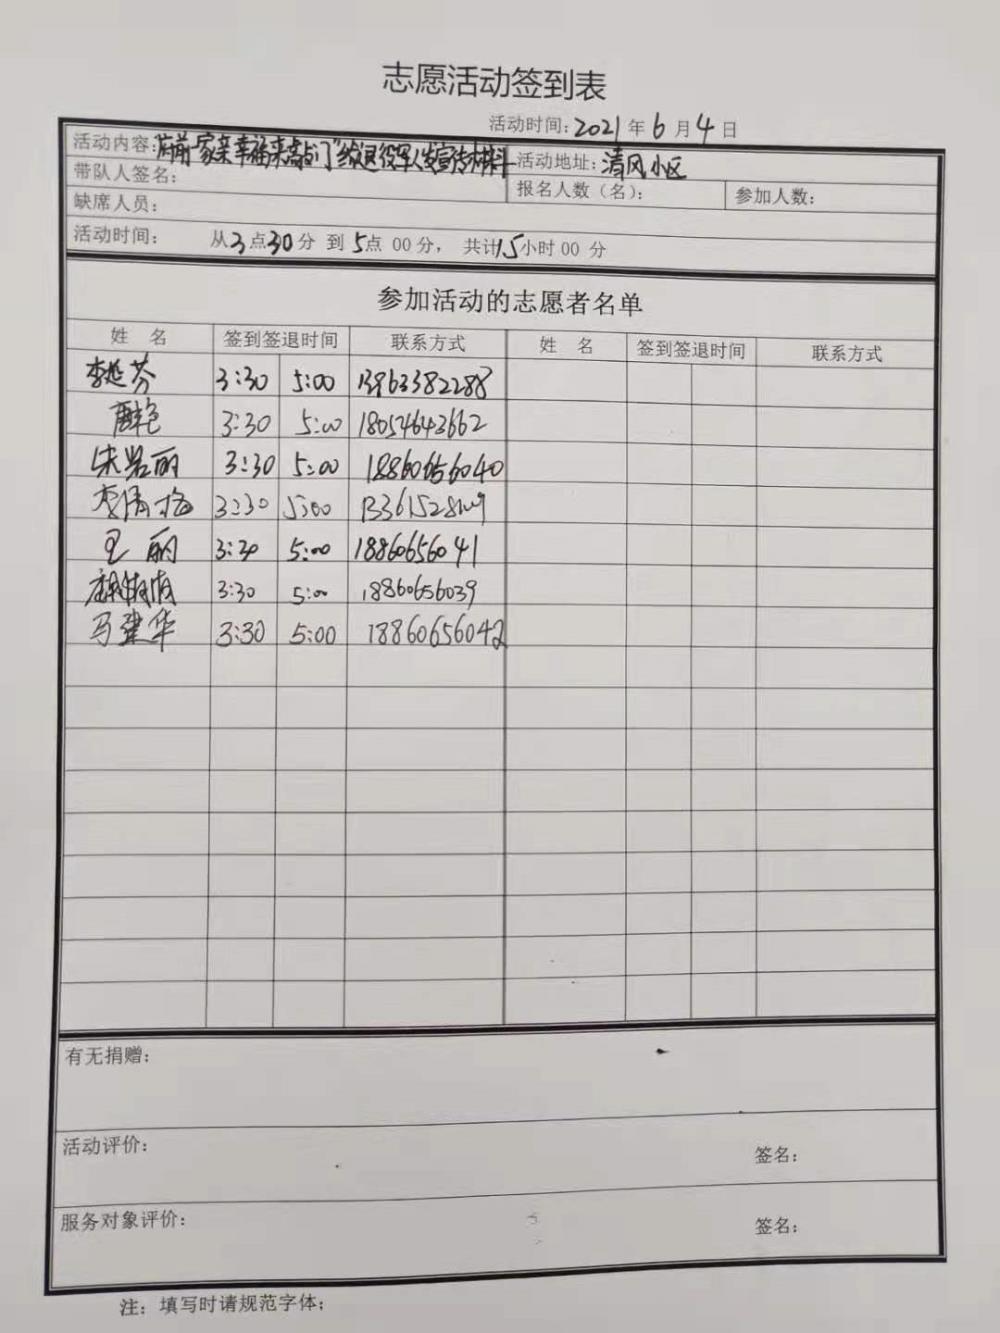 志愿活动签到表
活动时间：2021年6月4日
活动内容：府前一家亲 幸福来敲门"给退役军人发宣传材料 活动地址：清风小区
带队人签名： 报名人数（名）： 参加人数：
缺席人员：
活动时间： 从3点30分 到 5点 00分， 共计1.5小时00 分
参加活动的志愿者名单
姓 名 签到签退时间 联系方式 姓 名 签到签退时间 联系方式
李延芬 3:30 5:00 13963382288
3:30 5:00 18054643662
朱岩丽 3:30 5:00 18860656040
李倩梅 3:30 5:00
王丽 3:30 5:00 18860656041
3:30 5:00 18860656039
马建华 3:30 5:00 18860656042
有无捐赠：
活动评价：
签名：
服务对象评价：
签名：
注：填写时请规范字体；